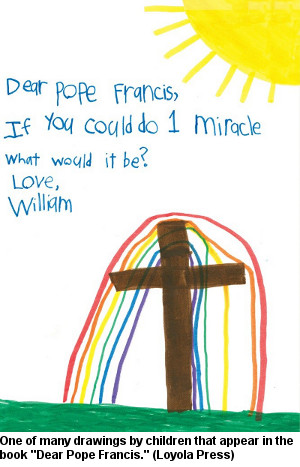 Dear Pope Francis,
If You could do 1 miracle
what would it be?
Love,
William
One of many drawings by children that appear in the
book "Dear Pope Francis." (Loyola Press)